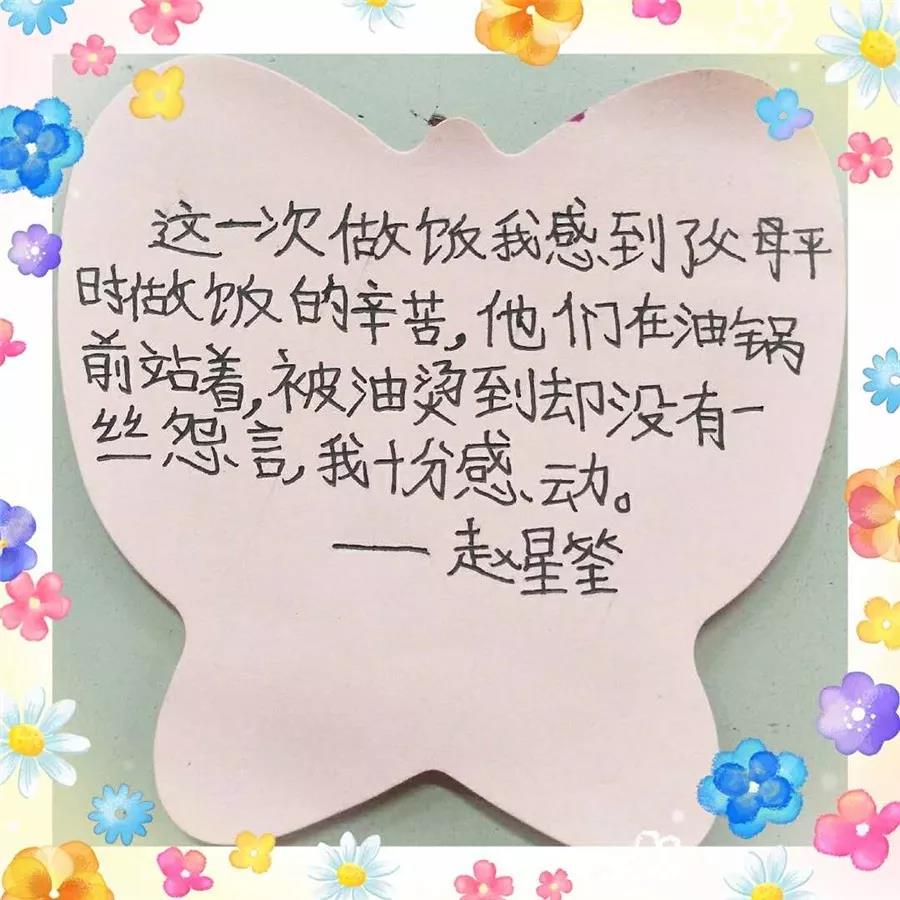 这一次做饭我感到了父母平
时做饭的辛苦,他们在油锅
前站着,被油烫到却没有一
丝怨言,我十分感动。
——赵星筌